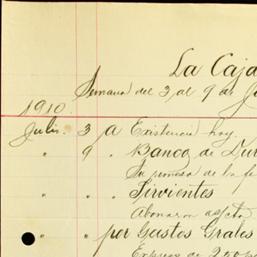 La Caja
Semana del 3 al 9 de Ju
1910
Julio. 3 A Existencia hoy.
" 9 . Banco de Dur
Su remesa de la fe
" . . Sirvientes
Abonaron as/cta
" . . por Gastos Grales
Expreso de 250 p